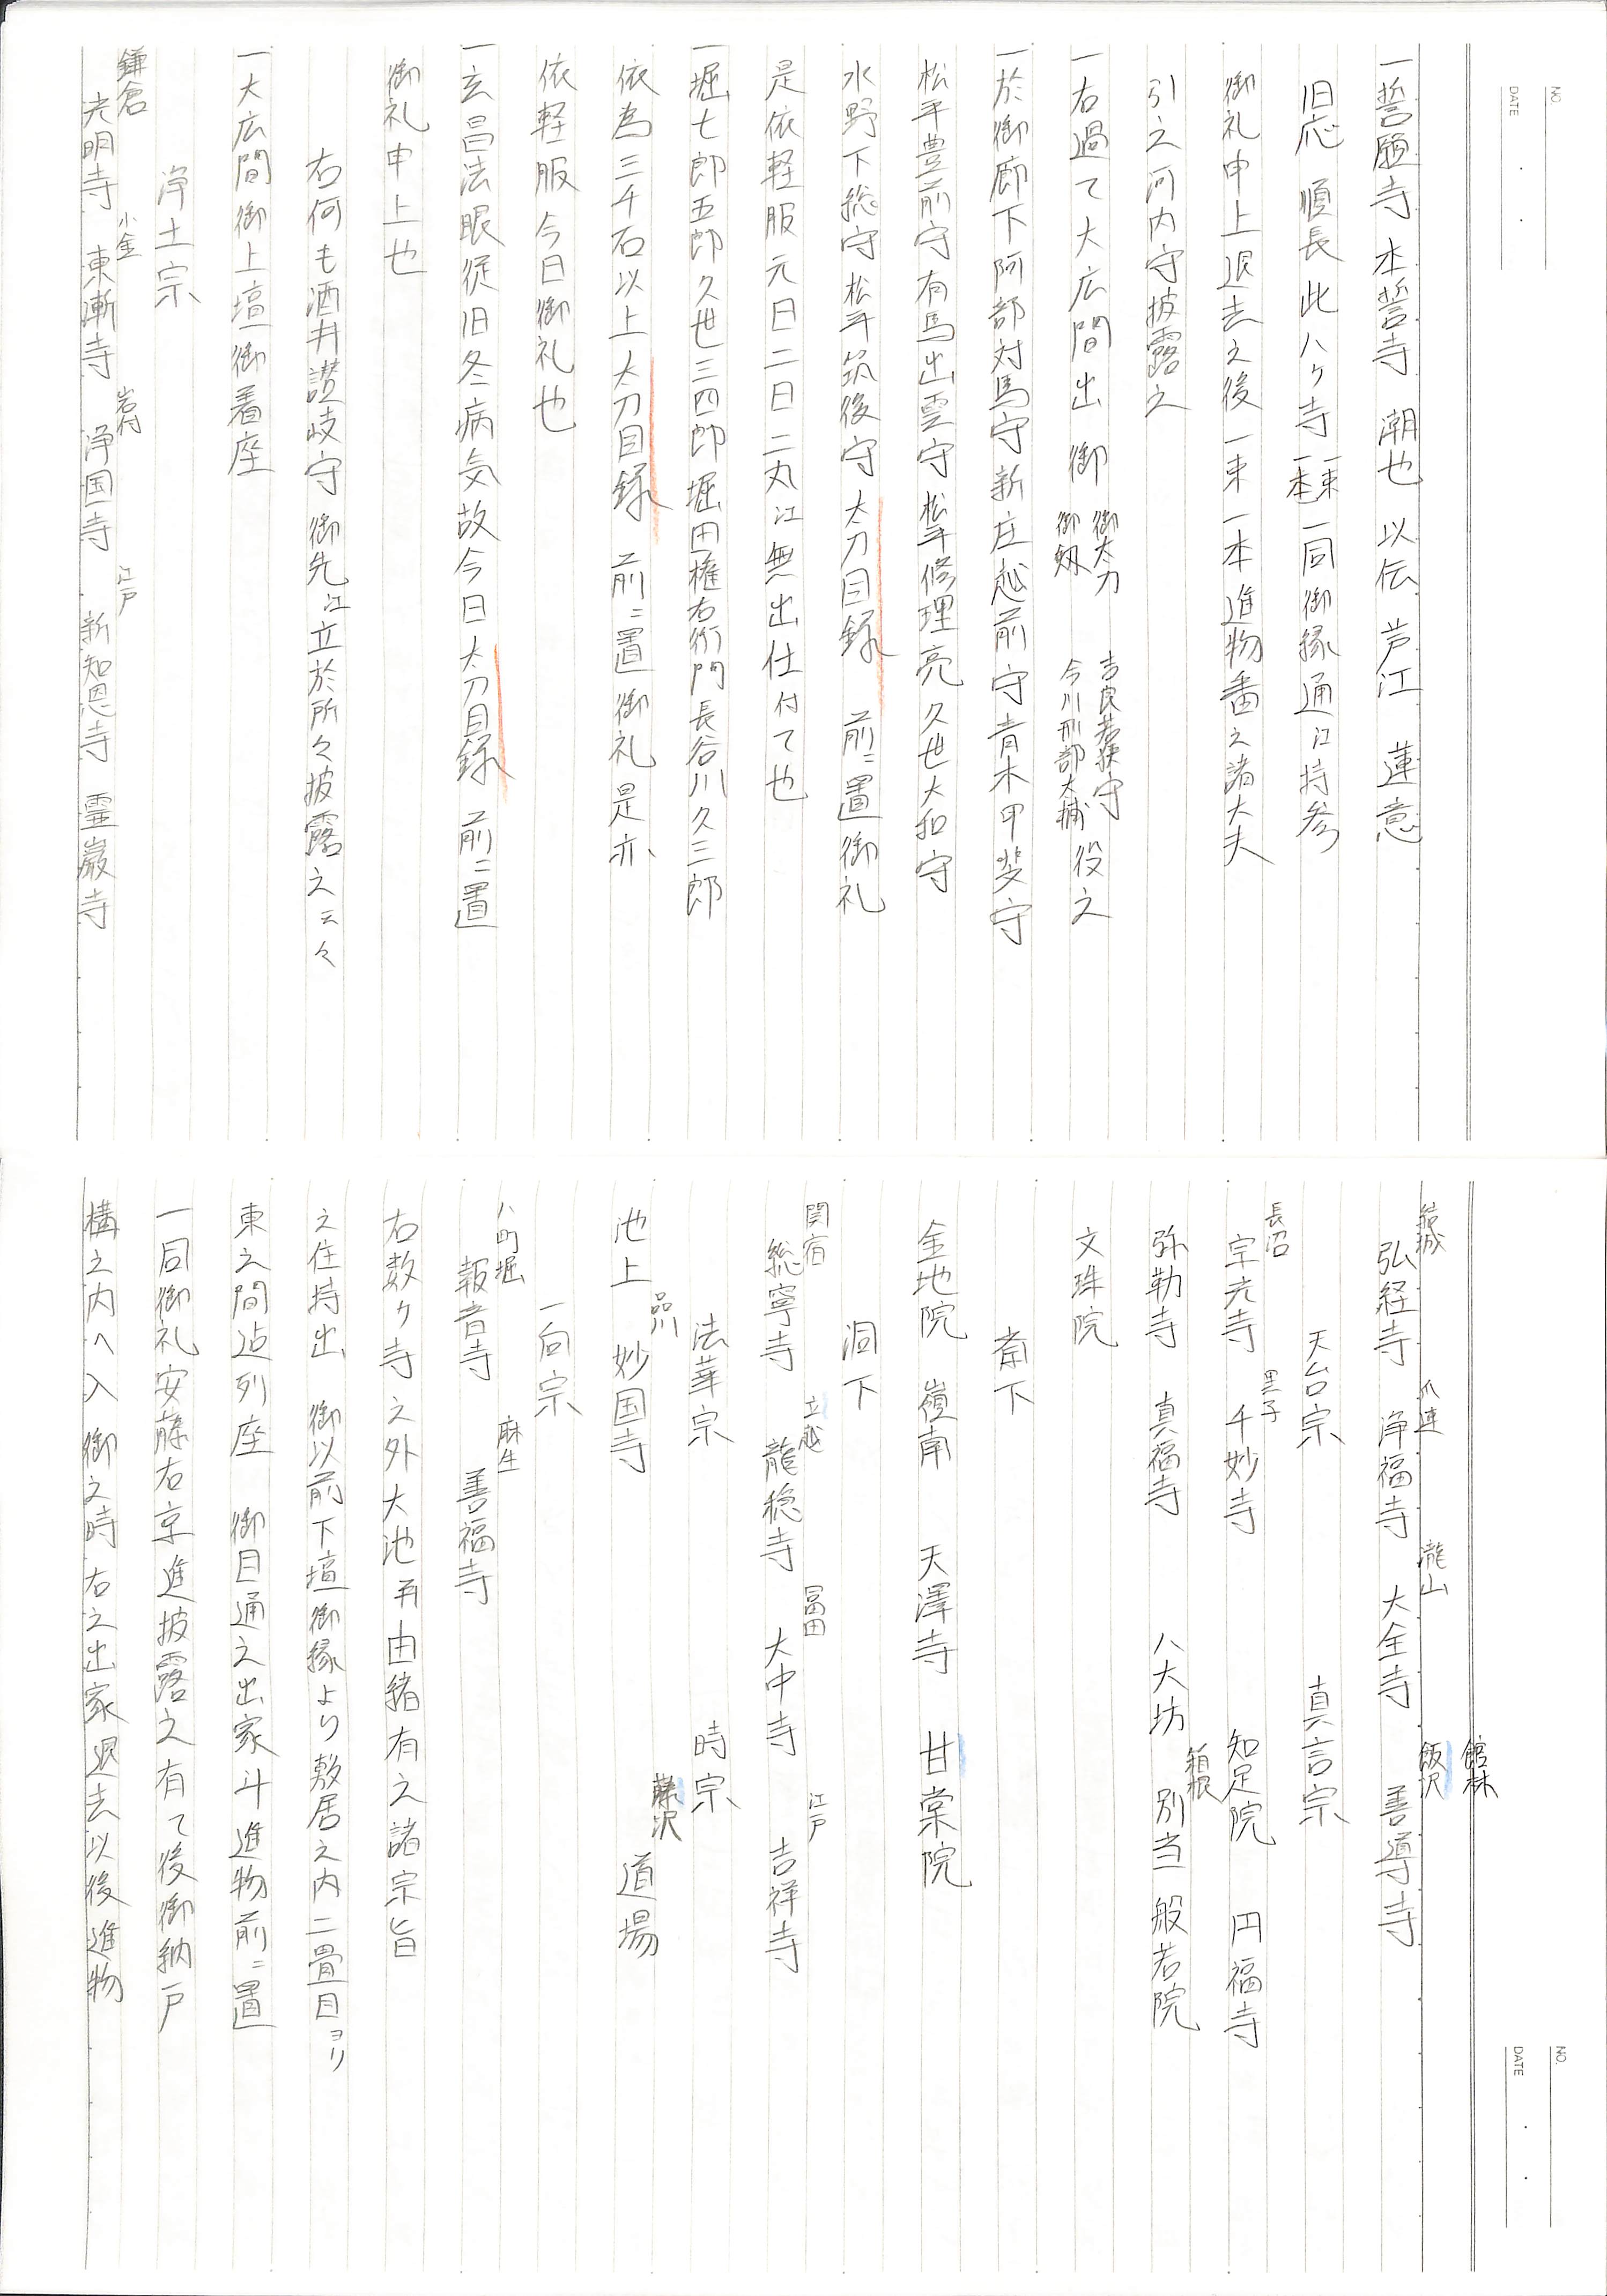 NO.
DATE
一誓願寺 本誓寺 潮也 以伝 芦江 蓮意
旧応 順長 此八ヶ寺 一束一本 一同御縁通江持参
御礼申上退去之後 一束一本進物番之諸大夫
引之河内守披露之
一右過て大広間出御 御太刀 御剱 吉良若狭守 今川刑部大輔 役之
一於御廊下阿部対馬守新庄越前守青木甲斐守
松平豊前守有馬出雲守松平修理亮久世大和守
水野下総守松平筑後守太刀目録 前ニ置御礼
是依軽服元日二日二丸江無出仕付て也
一堀七郎五郎久世三四郎堀田権右衛門長谷川久三郎
依為三千石以上太刀目録 前ニ置御礼是亦
依軽服今日御礼也
一玄昌法眼従旧冬病気故今日太刀目録 前ニ置
御礼申上也
右何も酒井讃岐守御先江立於所々披露之云々
一大広間御上壇御着座
浄土宗
鎌倉 小金 岩付 江戸
光明寺 東漸寺 浄国寺 新知恩寺 霊巌寺
NO.
DATE
館林
結城 爪連 瀧山 飯沢
弘経寺 浄福寺 大全寺 善導寺
天台宗 真言宗
長沼 黒子
宗光寺 千妙寺 知足院 円福寺
箱根
弥勒寺 真福寺 八大坊 別当 般若院
文珠院
斎下
金地院 嶺南 天澤寺 甘棠院
洞下
関宿 立越 冨田 江戸
総寧寺 龍穏寺 大中寺 吉祥寺
法華宗 時宗
品川 藤沢
池上 妙国寺 道場
一向宗
八町堀 麻生
報音寺 善福寺
右数ヶ寺之外大池再由緒有之諸宗旨
之住持出 御以前下壇御縁より敷居之内二畳目ヨリ
東之間迠列座 御目通之出家斗進物前ニ置
一同御礼安藤右京進披露之有て後御納戸
構之内へ入御之時右之出家退去以後進物